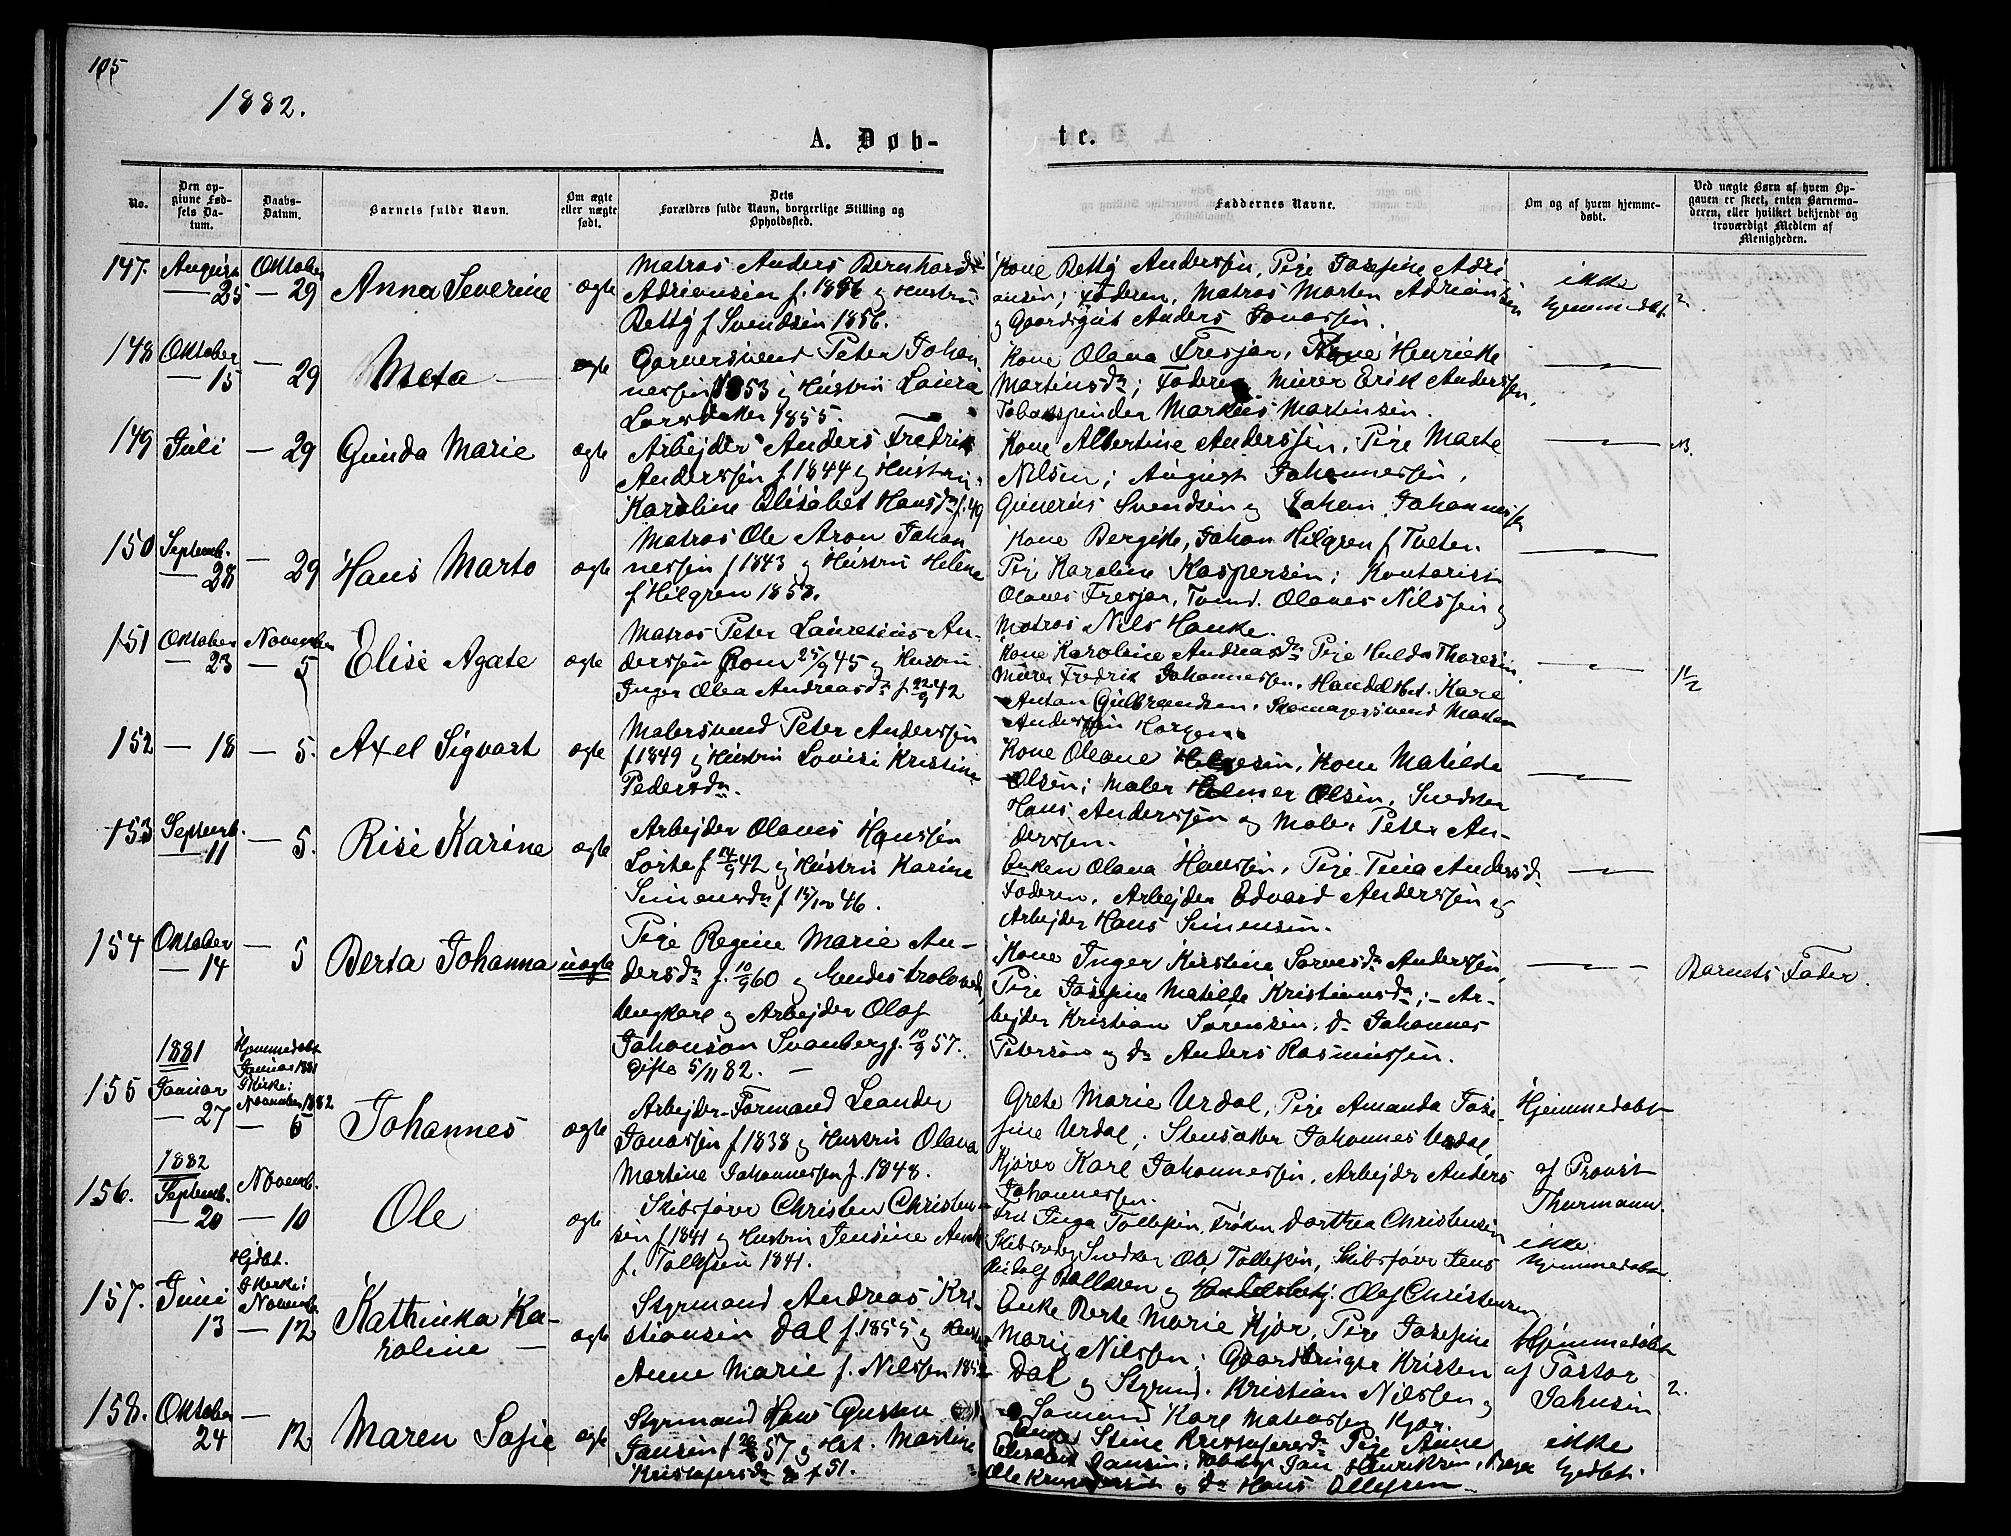 105
1882.
A. Døb-
te.
No.
Den op-
givne Fød-
sels Da-
tum.
Daabs-
Datum.
Barnets fulde Navn.
Om ægte
eller uægte
født.
Dets
Forældres fulde Navn, borgerlige Stilling og
Opholdssted.
Faddernes Navne.
Om og af hvem hjemme-
døbt.
Ved uægte Børn af hvem Op-
gaven er skeet, enten Barnemo-
deren, eller hvilket bekjendt og
troværdigt Medlem af
Menigheden.
147.
August
— 25
Oktober
— 29
Anna Severine
ægte
Matros Anders Bernhard
Adriansen f. 1856 og Hustru
Betty f Svendsen 1856.
Kone Betty Anderssen, Pige Josefine Adri
ansen; Faderen, Matros Morten Adriansen
og Gaardsgut Anders Jonassen.
ikke
hjemmedøbt.
2.
148
Oktober
— 15
— 29
Meta
ægte
Garversvend Peter Johan
nessen 1853 og Hustru Laura
1855.
Kone Olava Fresjar, Kone Henrikke
Martinsdr; Faderen, Murer Erik Anderssen,
Tobakspinder Markus Martinsen.
149
Juli
— 29
Gunda Marie
ægte
Arbejder Anders Fredrik
Anderssen f 1844 og Hustru
Karoline Elisabet Hansdr f. 49
Kone Albertine Anderssen, Pige Marte
Nilsen; August Johannessen,
Gunerius Svendsen og Johan Johannessen
150
Septemb.
— 28
— 29
Hans Marto
ægte
Matros Ole Aron Johan
nessen f 1843 og Hustru Helene
f Hilgren 1858.
Kone Bergite, Johan Hilgren f Tveten
Pige Karoline Kaspersen; Kontorist
Olaves Fresjar, Tømd. Olaves Nilssen og
Matros Nils Hauke.
151
Oktober
— 23
November
— 5
Elise Agate
ægte
Matros Peter Lauretius An-
derssen Rom 25/9 45 og Hustru
Inger Olea Andreasdr f 22/9 42
Kone Karoline Andreasdr Pige Hulda Thoresen
Murer Fredrik Johannessen, Handelsbet. Kare
Anton Gulbrandsen, Skomagersvend Martin
Anderssen Horgen.
11/2
152
— 18
— 5.
Axel Sigvart
ægte
Malersvend Peter Anderssen
f 1849 og Hustru Lovise Kristine
Pedersdr.
Kone Oleane Helgesen, Kone Matilde
Olsen; Maler Helmer Olsen, Snedker
Hans Anderssen og Maler Peter An-
derssen.
153
Septemb.
— 11
— 5.
Risi Karine
ægte
Arbejder Olaves Hanssen
Lorte f 14/9 42 og Hustru Karine
Simensdr f 15/10 46.
Enken Olava Hanssen, Pige Tina Andersdr
Faderen, Arbejder Edvard Anderssen og
Arbejder Hans Simensen.
154
Oktober
— 14
— 5
Berta Johanna
uægte
Pige Regine Marie An-
dersdr f. 10/9 60 og
Ungkarl og Arbejder Olof
Johanson Svanberg f. 10/9 57.
Gifte 5/11 82. —
Kone Inger Kirstine Sørensdr Anderssen,
Pige Josefine Matilde Kristiansdr; - Ar-
bejder Kristian Sørensen, do Johannes
Peterson og do Anders Rasmussen.
Barnets Fader.
155
1881
Januar
— 27
Hjemmedøbt
Januar 1881
I Kirke:
November 1882
— 5
Johannes
ægte
Arbejder-Formand Leander
Jonassen f 1838 og Hustru Olava
Martine Johannessen f. 1848.
Grete Marie Urdal, Pige Amanda Jose-
fine Urdal; Stensætter Johannes Urdal,
Kjører Karl Johannessen, Arbejder Anders
Johannessen.
Hjemmedøbt
af Provst
Thurmann.
156.
1882
Septemb.
— 20
Novemb.
— 10
Ole
ægte
Skibsfører Christen Christen-
sen f 1841 og Hustru Jensine
f. Tollefsen 1841.
Fru Inga Tollefsen, Frøken Dorthea Christensen
Skibsbyg Snedker Ole Tollefsen, Skibsfører Jens
Rudolf Ballesen og Handelsbetj. Olaf Christensen
ikke
hjemmedøbt.
157.
Juni
13
Hjdbt.
I Kirke:
Novemb.
— 12
Kathinka Ka-
roline —
ægte
Styrmand Andreas Kri-
stiansen Dal f. 1855 og Hustru
Anne Marie f. Nilssen
Enke Berte Marie Kjør, Pige Josefine
Marie Nilssen; Gaardbruger Kristen
Dal og Styrmd. Kristian Nilssen og
Sømand Karl Mathissen Kjør.
Hjemmedøbt
af Pastor
Jahnsen
2.
158.
Oktober
24
—
12
Maren Sofie
ægte
Styrmand Hans Gustav
Jansen f 57 og Hst. Martine
Kristofersdr f 51.
Enke Stine Kristofersdr Pige Anne
Jansen, Jan Henriksen,
Ole og do Hans Ollefsen
ikke
hjdbt.